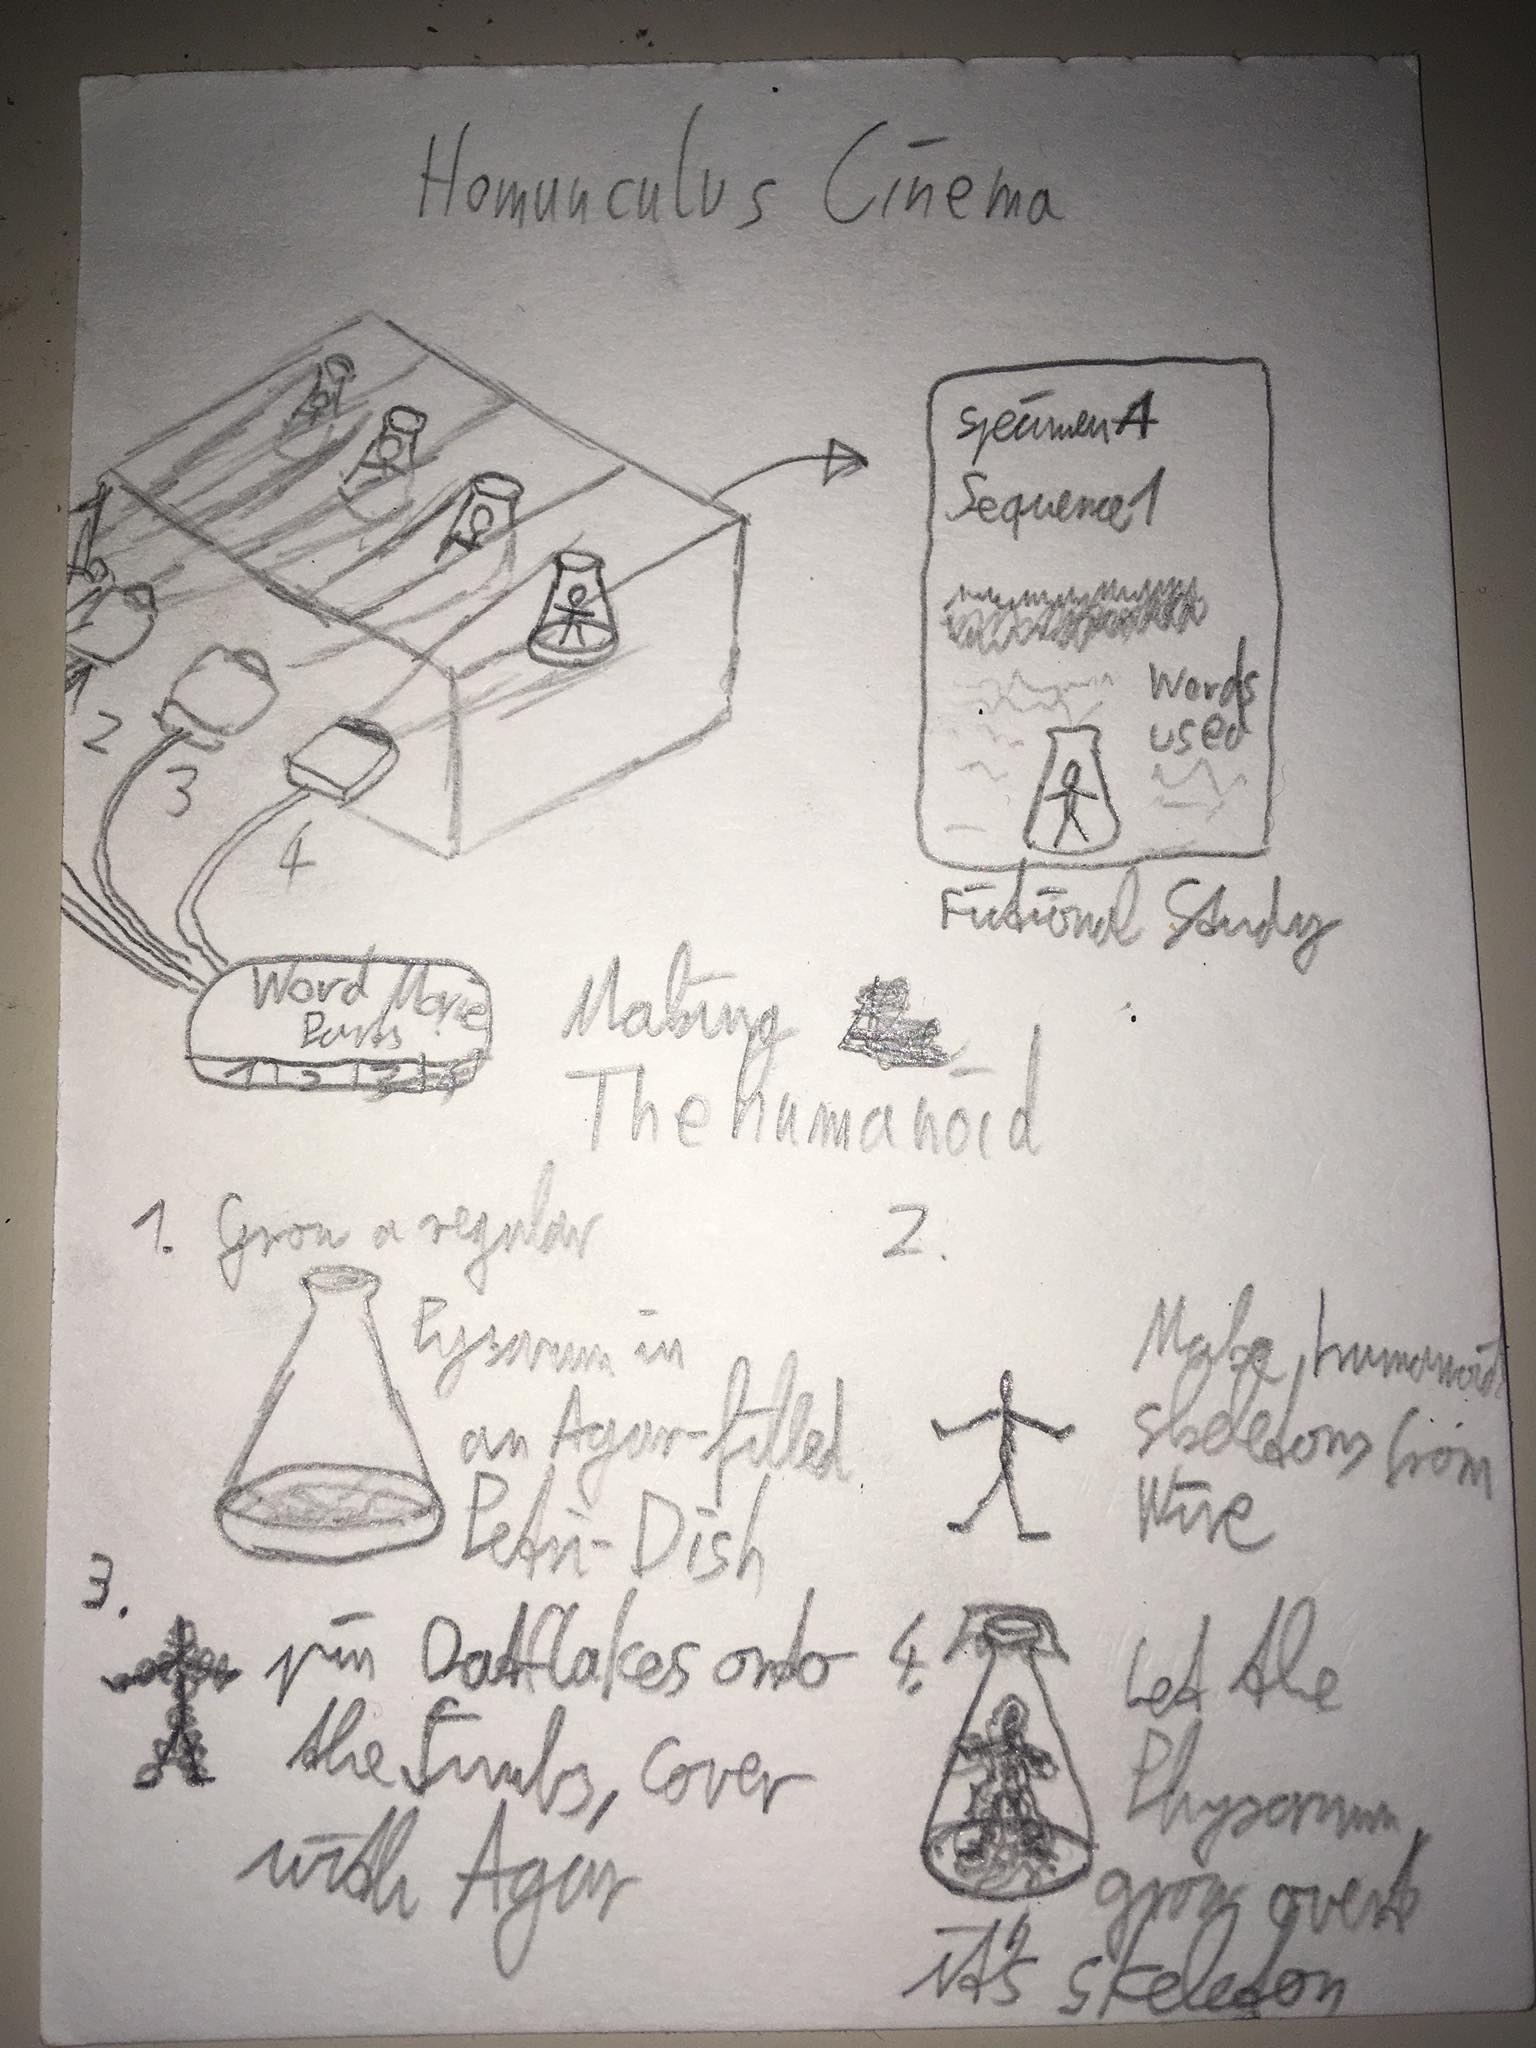 Homunculus Cinema
Specimen A
Sequence 1
Words
used
Fictional Study
1
2
3
4
Word Movie
Parts
1 2 3 4
Making
The humanoid
1. Grow a regular
Pysarum in
an Agar-filled
Petri-Dish
2.
Make humanoid
skeletons from
Wire
3.
pin Oatflakes onto
the limbs, Cover
with Agar
4.
Let the
Physarum
grow over
it's skeleton